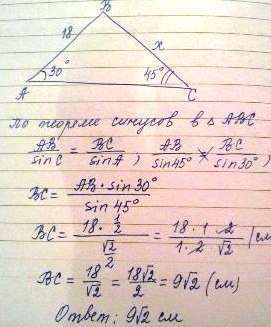 B
18
x
30°
45°
A
C
по теореме синусов в △ ABC
AB/sinC = BC/sinA ; AB/sin45° = BC/sin30° ;
BC = AB · sin30° / sin45°
BC = 18 · 1/2 / √2/2 = 18 · 1 · 2 / 1 · 2 · √2 (см
BC = 18/√2 = 18√2/2 = 9√2 (см)
Ответ: 9√2 см